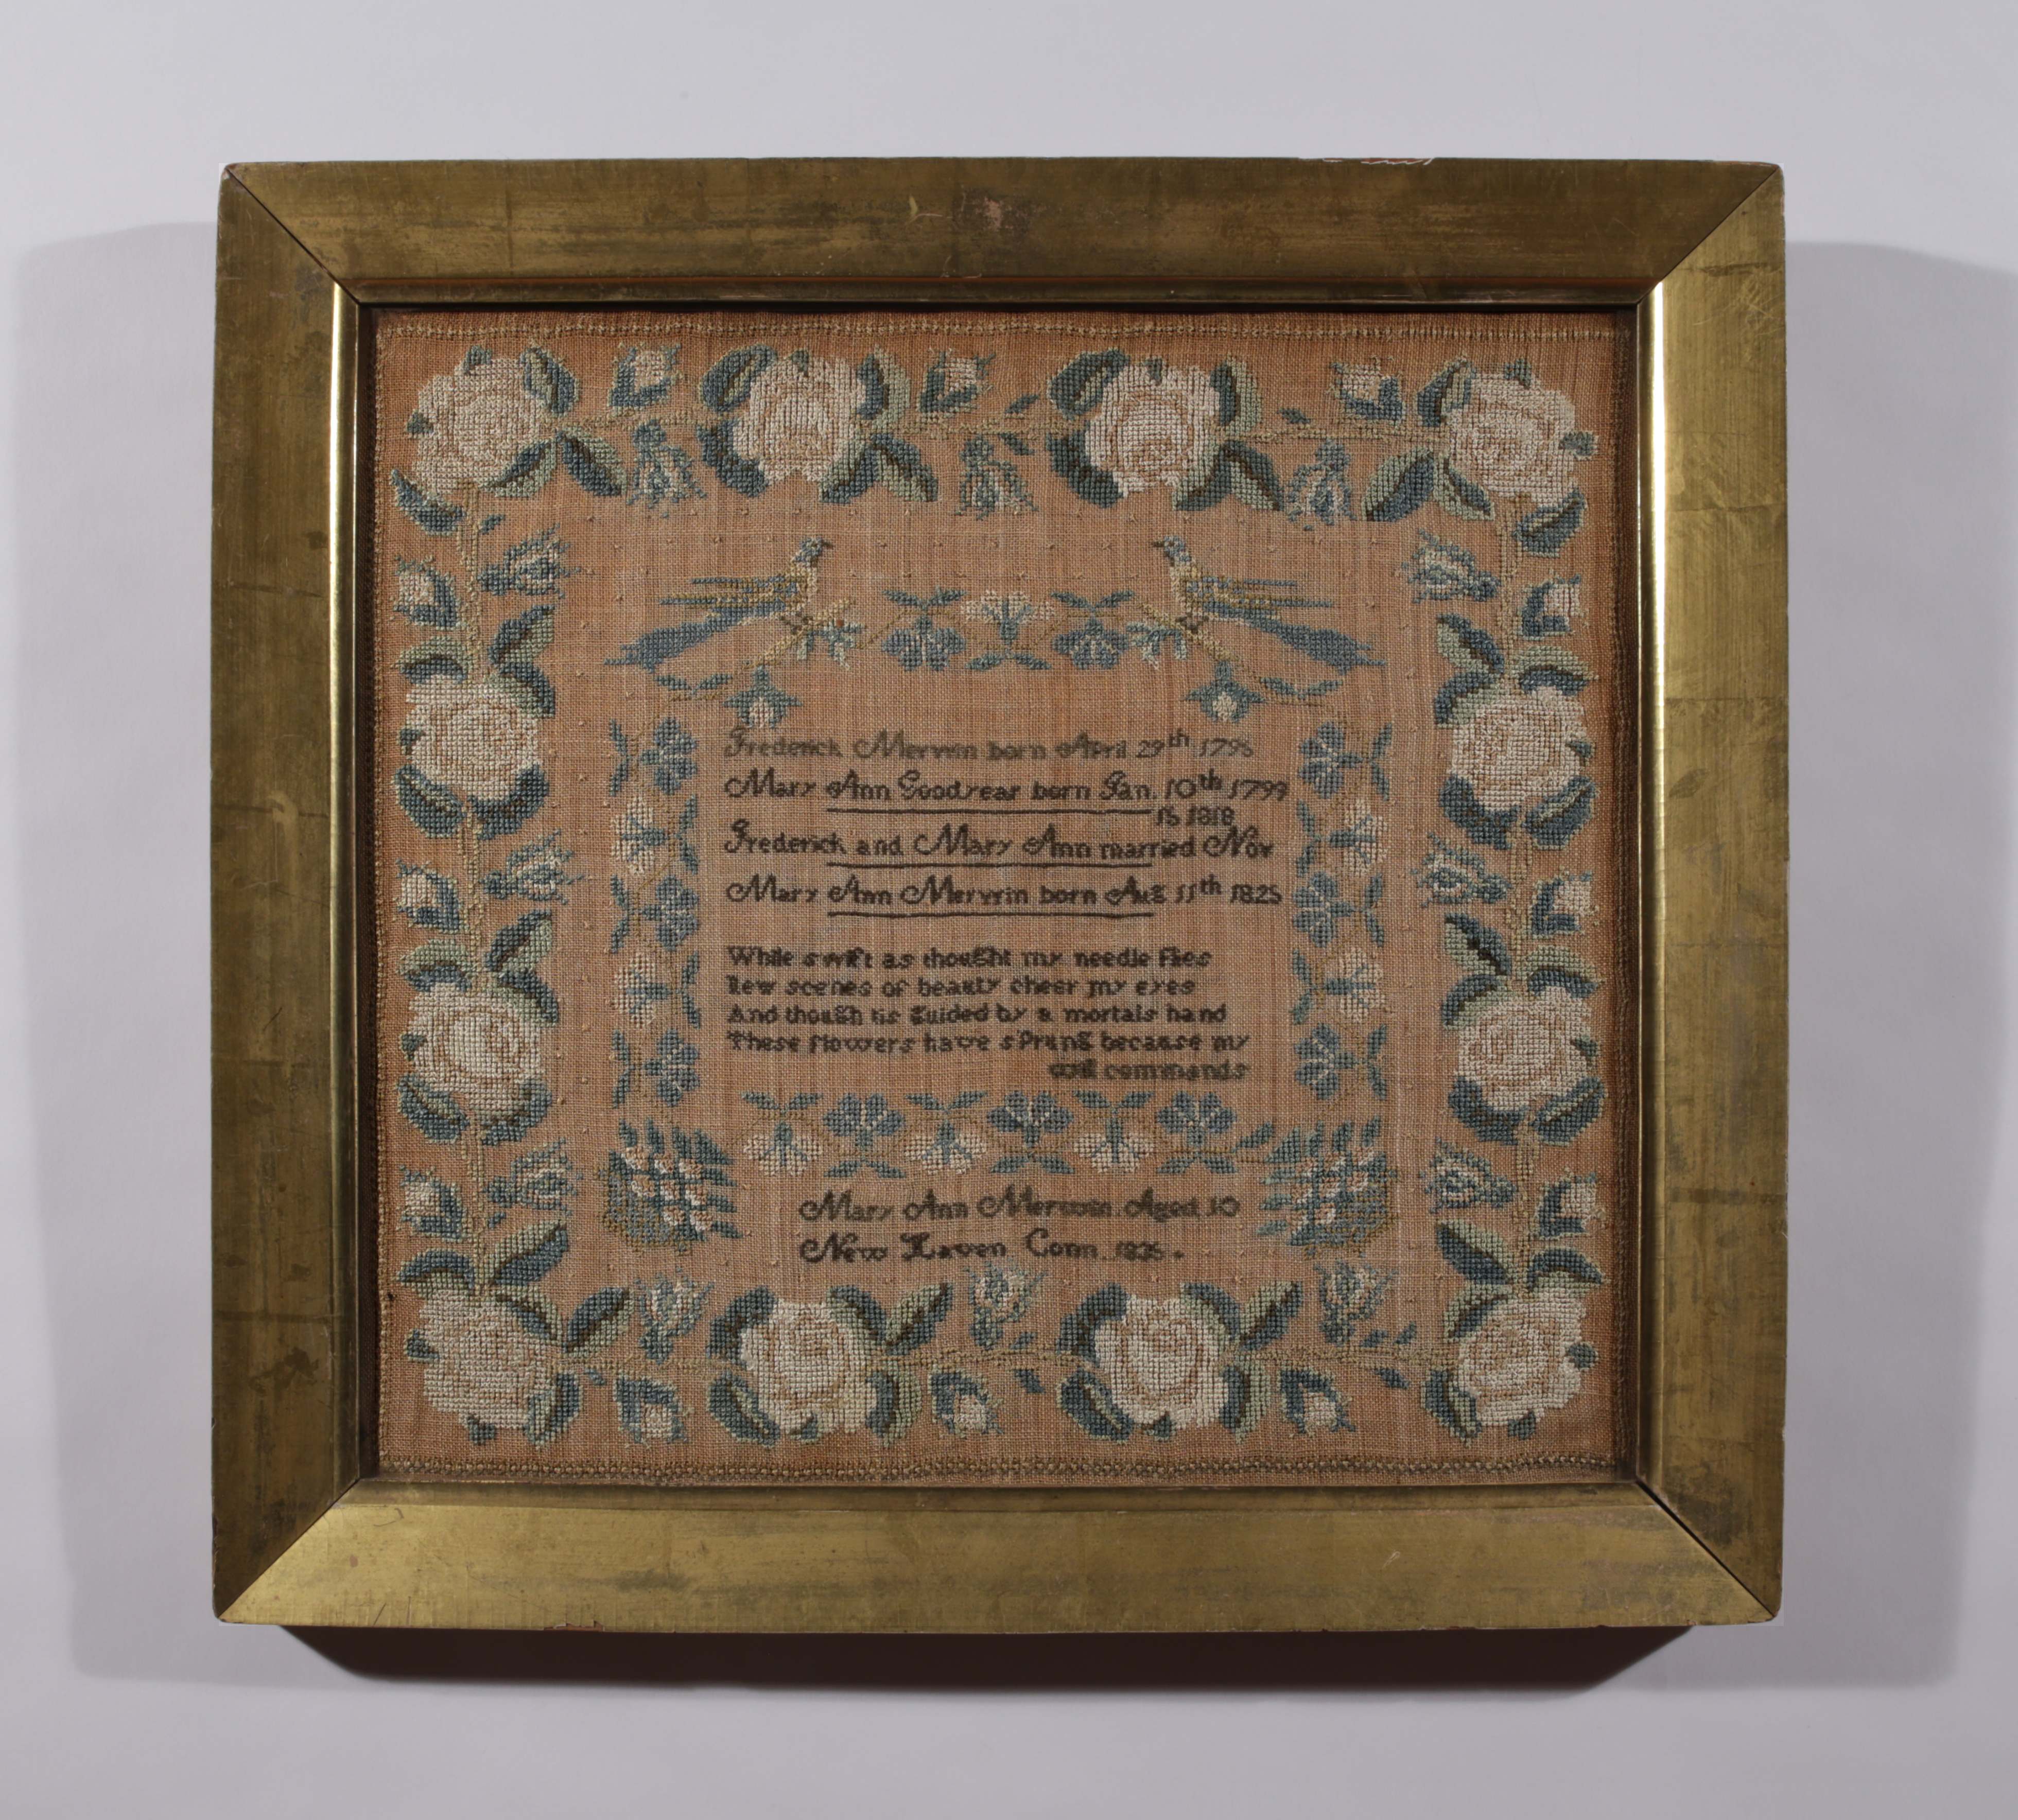 Frederick Merwin born April 29th 1796
Mary Ann Goodyear born Jan. 10th 1799
15 1818
Frederick and Mary Ann married Nov
Mary Ann Merwin born Aug 11th 1825
While swift as thought my needle flies
New scenes of beauty cheer my eyes
And though tis guided by a mortals hand
These flowers have sprung because my
will commands
Mary Ann Merwin Aged 10
New Haven Conn. 1835.